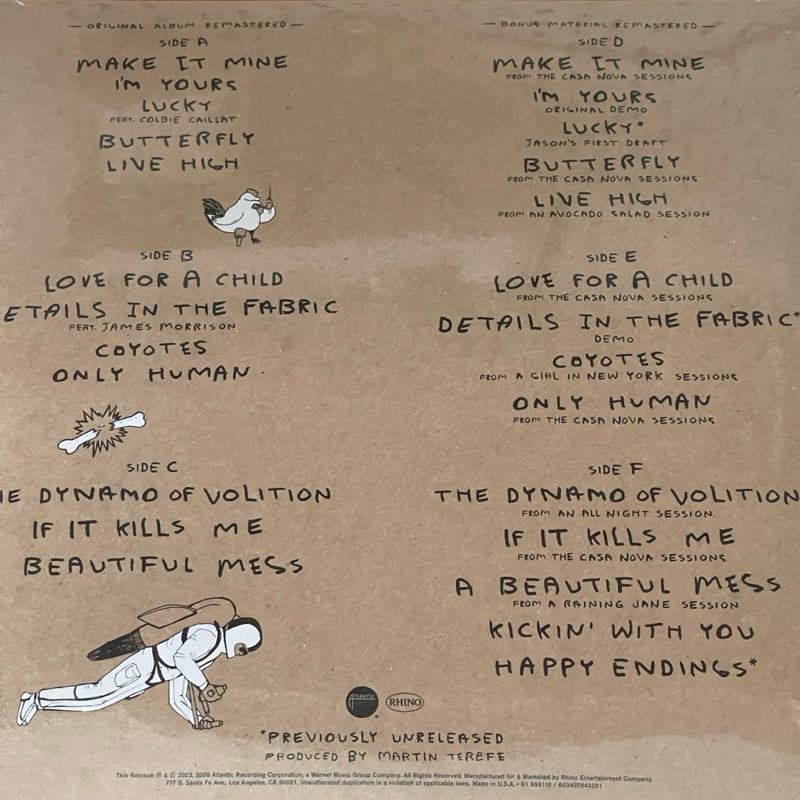 — ORIGINAL ALBUM REMASTERED —
SIDE A
MAKE IT MINE
I'M YOURS
LUCKY
FEAT. COLBIE CAILLAT
BUTTERFLY
LIVE HIGH
SIDE B
LOVE FOR A CHILD
ETAILS IN THE FABRIC
FEAT. JAMES MORRISON
COYOTES
ONLY HUMAN
SIDE C
HE DYNAMO OF VOLITION
IF IT KILLS ME
BEAUTIFUL MESS
— BONUS MATERIAL REMASTERED —
SIDE D
MAKE IT MINE
FROM THE CASA NOVA SESSIONS
I'M YOURS
ORIGINAL DEMO
LUCKY*
JASON'S FIRST DRAFT
BUTTERFLY
FROM THE CASA NOVA SESSIONS
LIVE HIGH
FROM AN AVOCADO SALAD SESSION
SIDE E
LOVE FOR A CHILD
FROM THE CASA NOVA SESSIONS
DETAILS IN THE FABRIC*
DEMO
COYOTES
FROM A GIRL IN NEW YORK SESSIONS
ONLY HUMAN
FROM THE CASA NOVA SESSIONS
SIDE F
THE DYNAMO OF VOLITION
FROM AN ALL NIGHT SESSION
IF IT KILLS ME
FROM THE CASA NOVA SESSIONS
A BEAUTIFUL MESS
FROM A RAINING JANE SESSION
KICKIN' WITH YOU
HAPPY ENDINGS*
ATLANTIC
RHINO
*PREVIOUSLY UNRELEASED
PRODUCED BY MARTIN TEREFE
This Reissue ℗ & © 2023, 2008 Atlantic Recording Corporation, a Warner Music Group Company. All Rights Reserved. Manufactured for & Marketed by Rhino Entertainment Company,
777 S. Santa Fe Ave., Los Angeles, CA 90021. Unauthorized duplication is a violation of applicable laws. Made in U.S.A. • R1 659116 / 603497843251